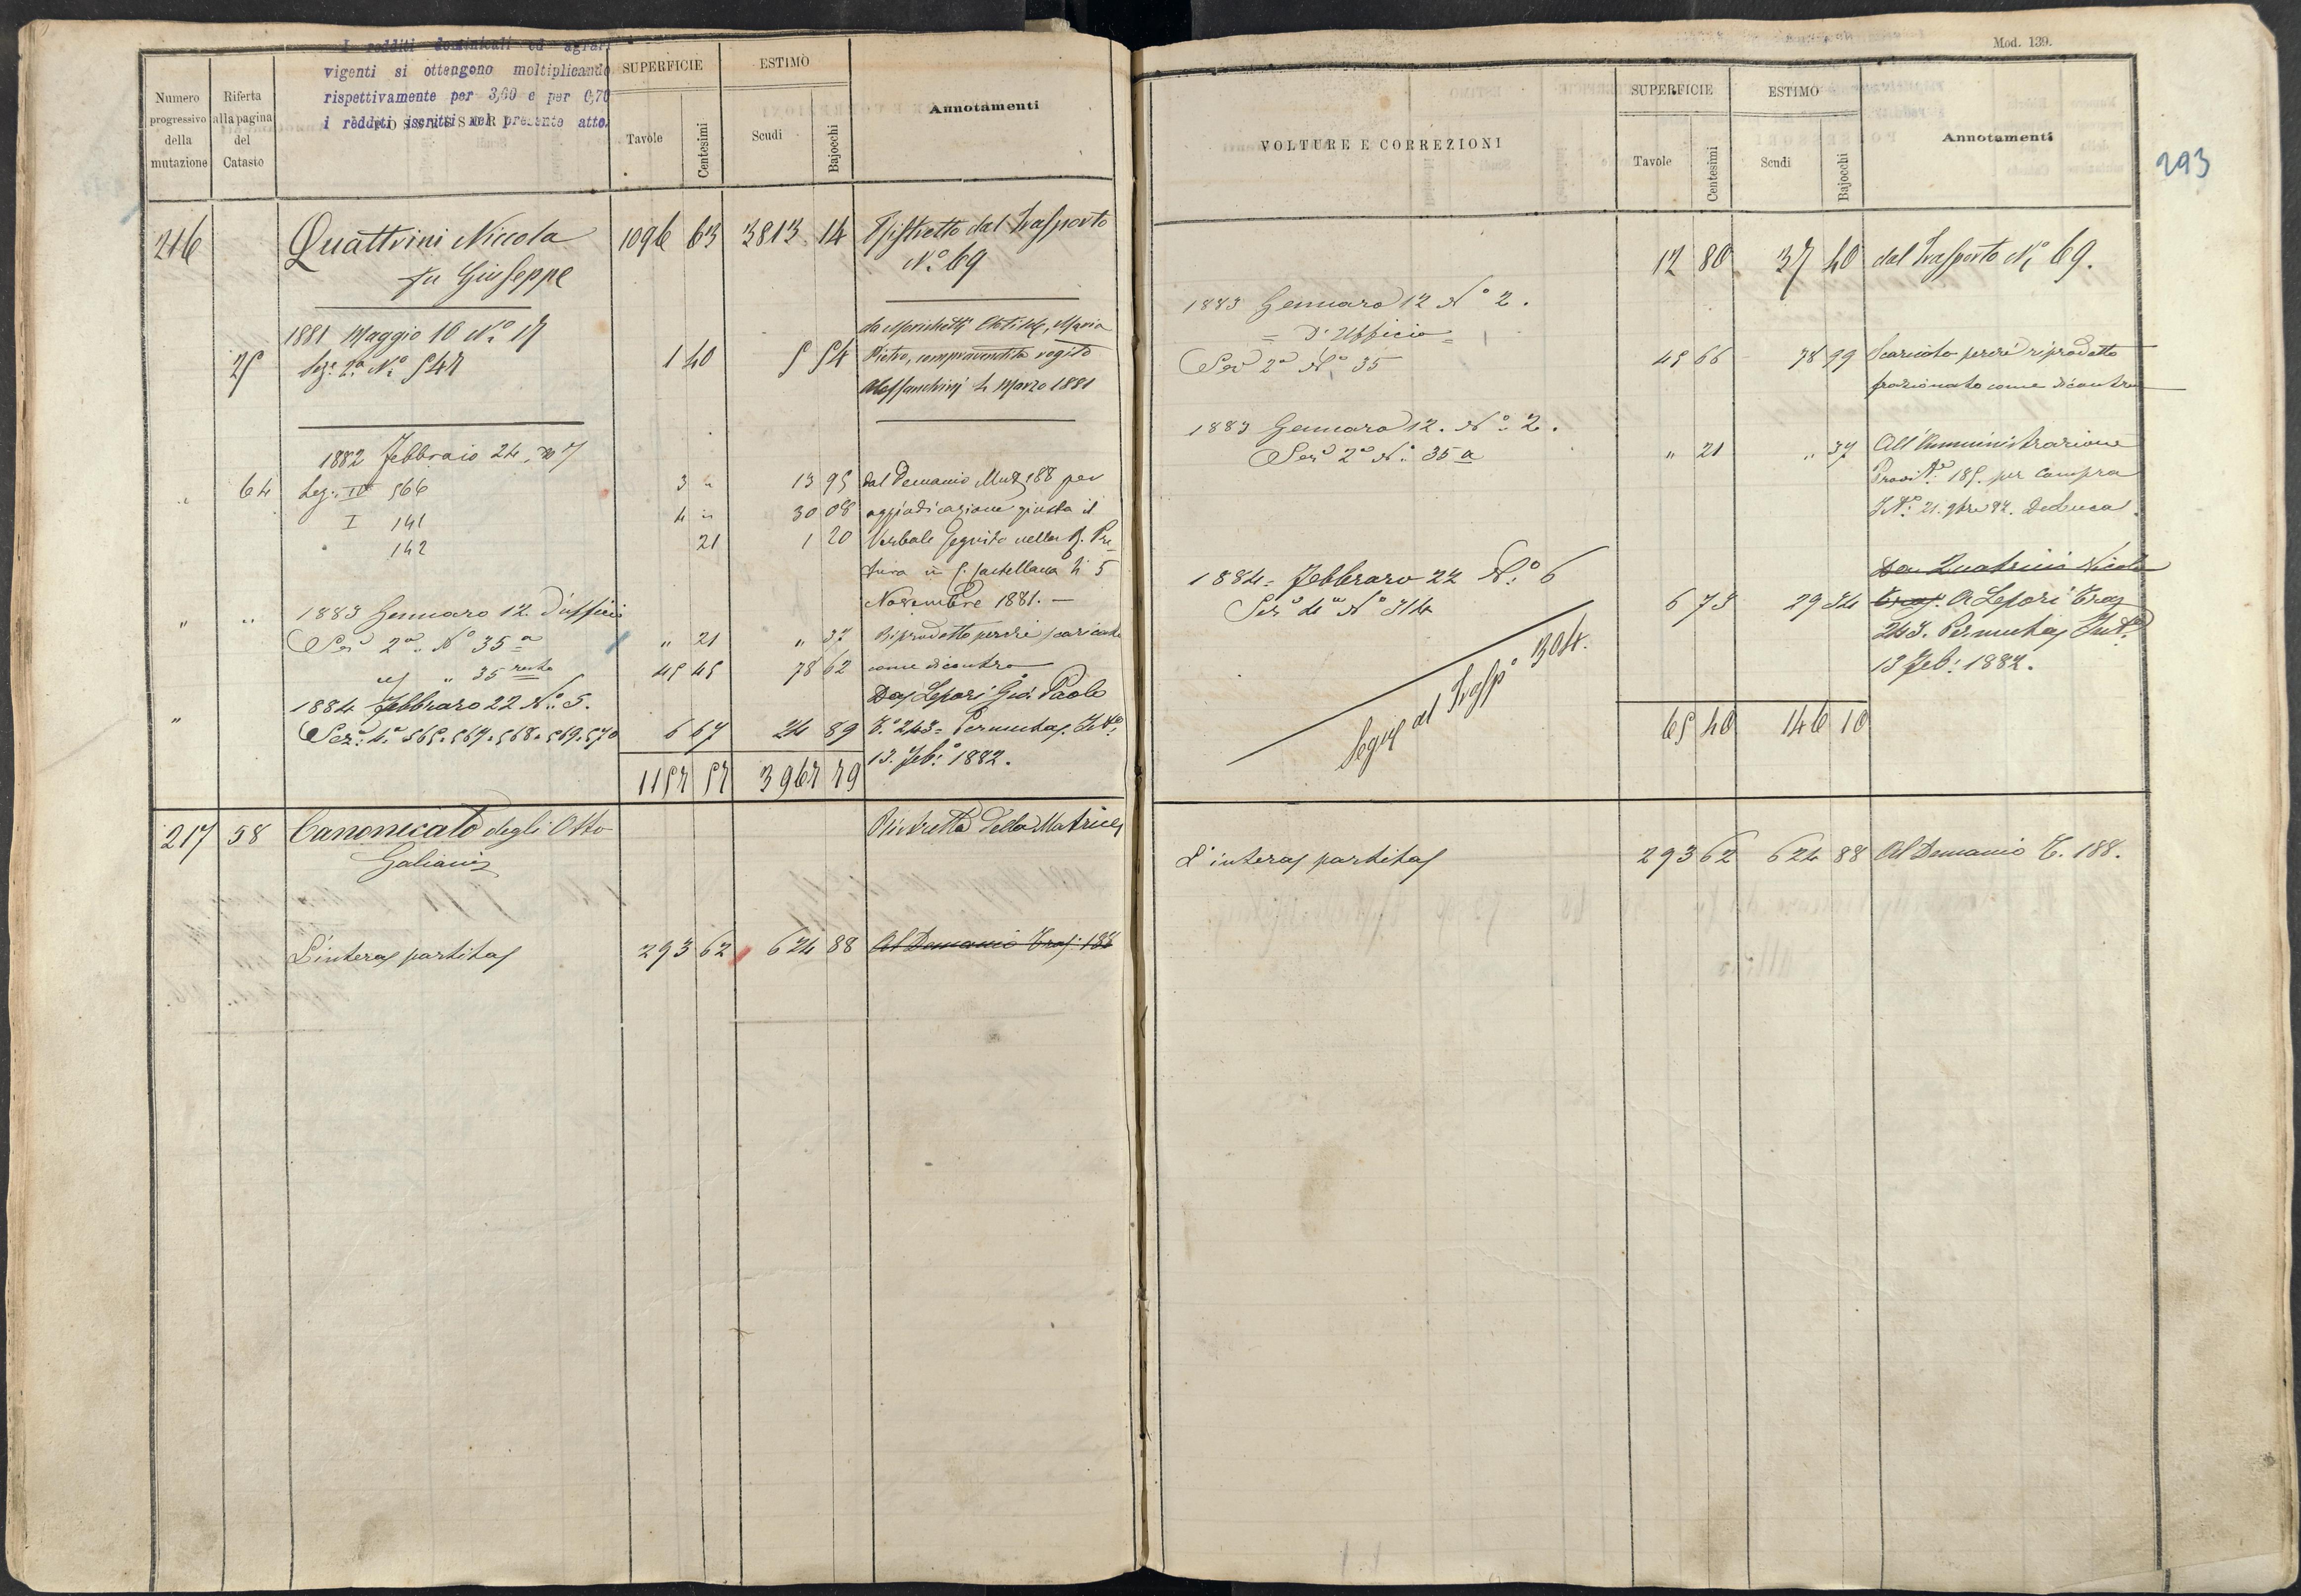 I redditi dominicali ed agrari
vigenti si ottengono moltiplicando
rispettivamente per 3,60 e per 0,70
i redditi iscritti nel presente atto.
Numero progressivo della mutazione
Riferta alla pagina del Catasto
POSSESSORI
SUPERFICIE
Tavole Centesimi
ESTIMO
Scudi Bajocchi
Annotamenti
216 Quattrini Niccola 1096 63 3813 14 Ristretto dal Trasporto
fu Giuseppe N.º 69
1881 Maggio 10 Nº 17 da Morichelli Clotilde, Maria
25 Sez: 2ª Nº 547 1 40 5 54 Pietro, compravendita rogito
Alessandrini 4 Marzo 1881
1882 Febbraio 24, no 7
" 64 Sez: IVª 566 3 " 13 95 dal Demanio 188 per
I 141 4 " 30 08 aggiudicazione giusta il
142 21 1 20 Verbale seguito nella R. Pre
tura in C. Castellana li 5
Novembre 1881. —
" " 1883 Gennaro 12. d'ufficio
Sez 2ª Nº 35 a " 21 " 37 Riprodotto perché scaricato
" 35 resto 45 45 78 62 come dicontro
" 1884 Febbraro 22 Nº 5. Da Lepori Gio: Paolo
Sez: 4ª 565. 567. 568. 569. 570 6 67 24 89 T.º 243 = Permuta
13. Feb: 1882.
1157 57 3967 79
217 58 Canonicato degli Otto Ristretto della Matrice
Galiani
L'intera partita 293 62 624 88 Al Demanio Tras: 188
Mod. 139.
293
VOLTURE E CORREZIONI
SUPERFICIE
Tavole Centesimi
ESTIMO
Scudi Bajocchi
Annotamenti
12 80 37 40 dal Trasporto Nº 69.
1883 Gennaro 12 Nº 2.
= D'Ufficio =
Sez 2ª Nº 35 45 66 78 99 Scaricato perché riprodotto
frazionato come dicontro
1883 Gennaro 12. Nº 2.
Sez 2ª Nº 35 a " 21 " 37 All'Amministrazione
185. per Compra
21. 9bre 82. Deduca.
1884 = Febbraro 22 Nº 6 Da Quatrini Nicola
Sez 4ª Nº 314 6 73 29 34 Tras. A Lepori Tras
243. Permuta
13 Feb: 1882.
Segue al Traspº 304.
65 40 146 10
L'intera partita 293 62 624 88 Al Demanio T. 188.